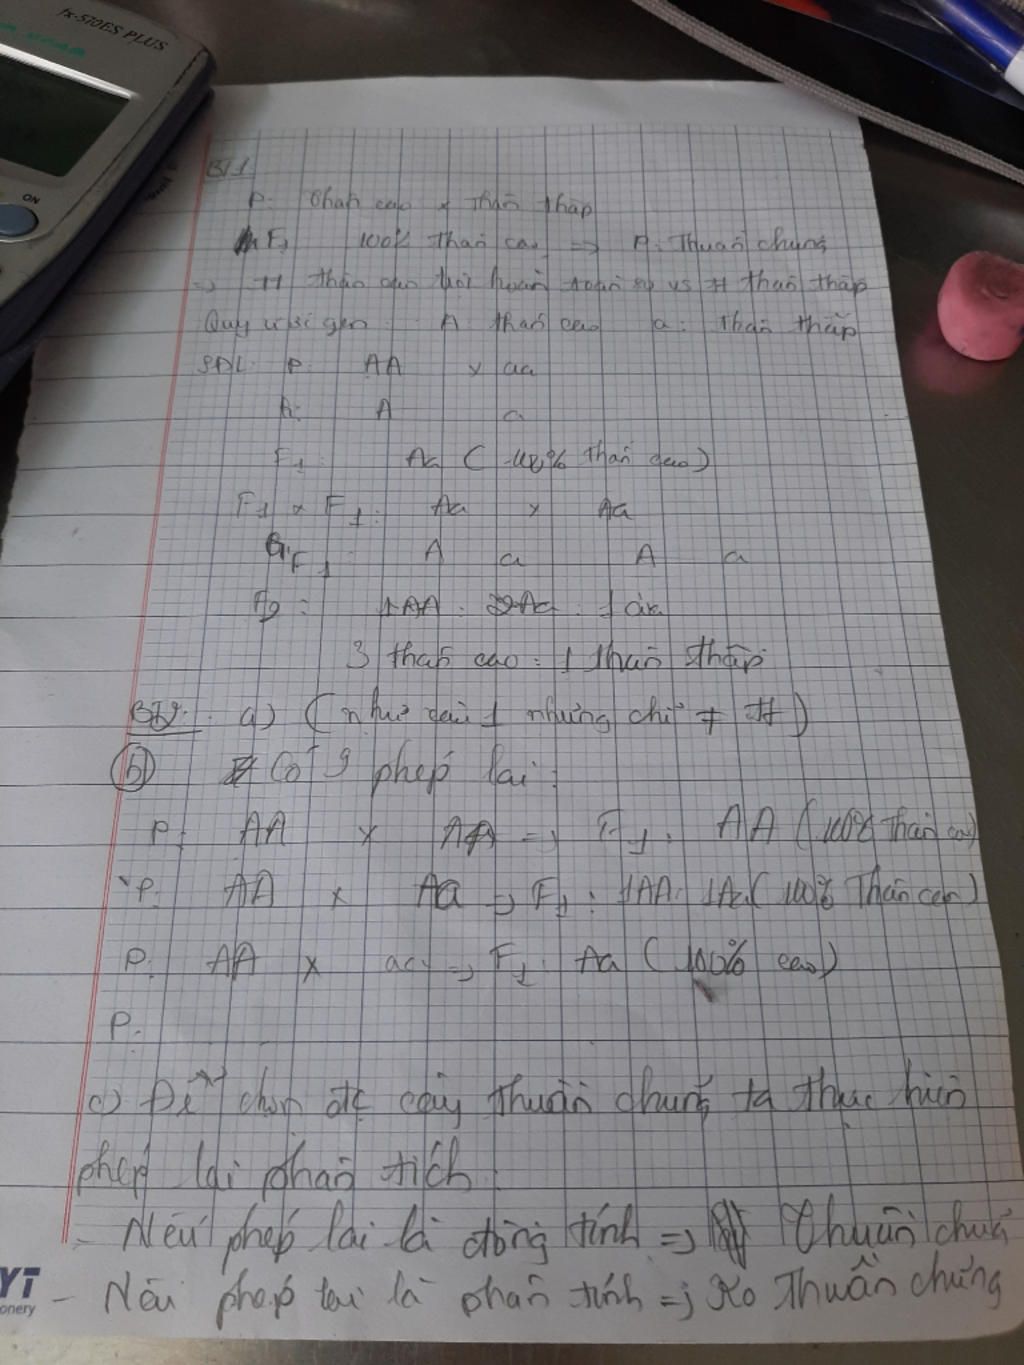 fx-570ES PLUS
ON
BT1
P: Thân cao x thân thấp
F1 100% thân cao => P: Thuần chủng
=> tt thân cao trội hoàn toàn so vs tt thân thấp
Quy ước gen: A: thân cao a: thân thấp
SĐL: P: AA x aa
G: A a
F1: Aa (100% thân cao)
F1 x F1: Aa x Aa
GF1: A a A a
F2: 1AA : 2Aa : 1aa
3 thân cao : 1 thân thấp
BT2: a) (như câu 1 nhưng chỉ ≠ tt)
b) Có 9 phép lai:
P: AA x AA => F1: AA (100% thân cao)
P: AA x Aa => F1: 1AA : 1Aa (100% Thân cao)
P: AA x aa => F1: Aa (100% cao)
P:
c) Để chọn đc cây thuần chủng ta thực hiện
phép lai phân tích
- Nếu phép lai là đồng tính => thuần chủng
YT
onery
- Nếu phép lai là phân tính => Ko thuần chủng